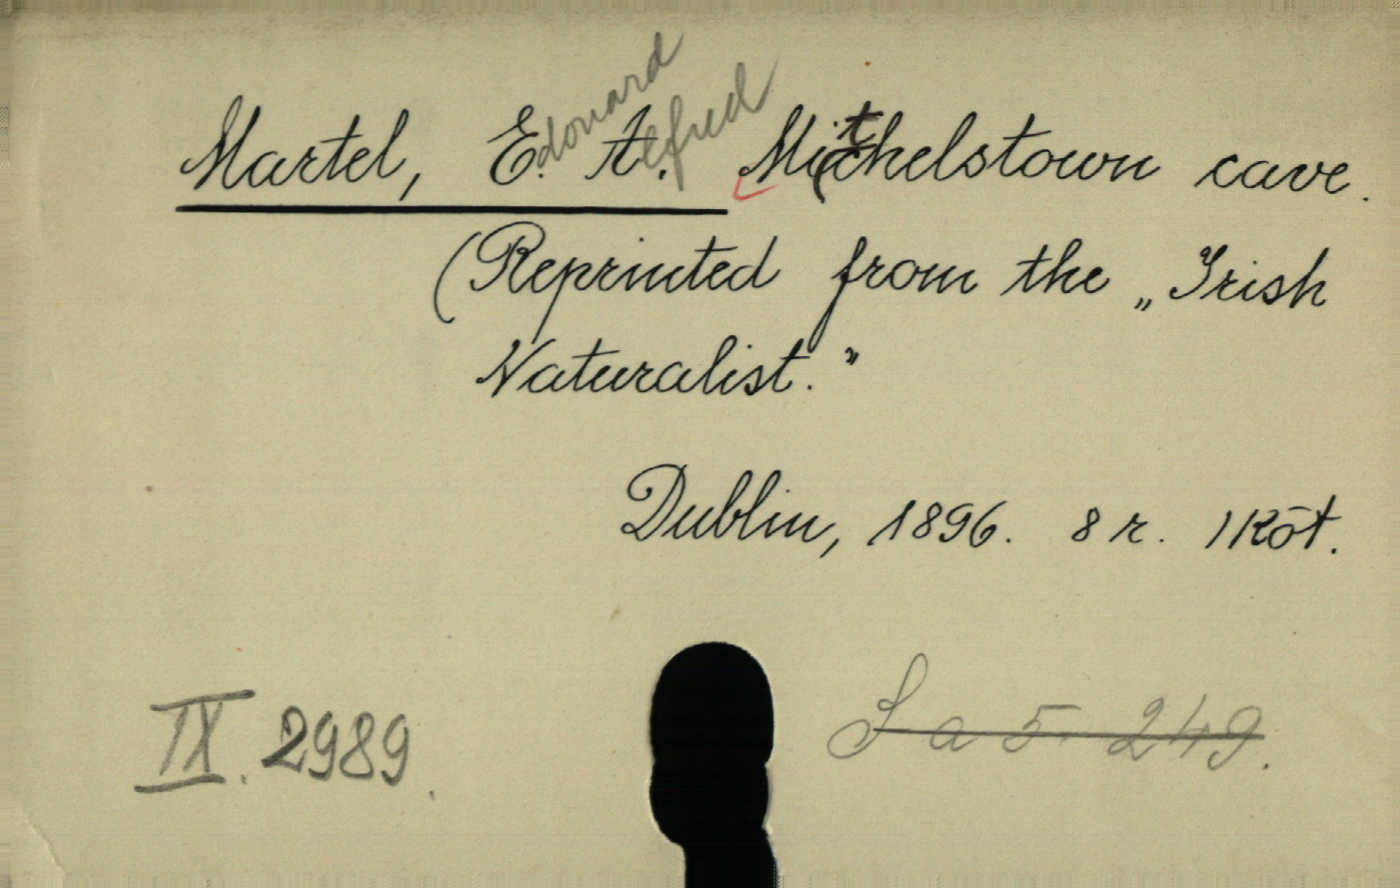 Martel, Edouard Alfred Mitchelstown cave.
(Reprinted from the „Irish
Naturalist.”
Dublin, 1896. 8 r. 1 Köt.
IX. 2989.
S a 5. 249.